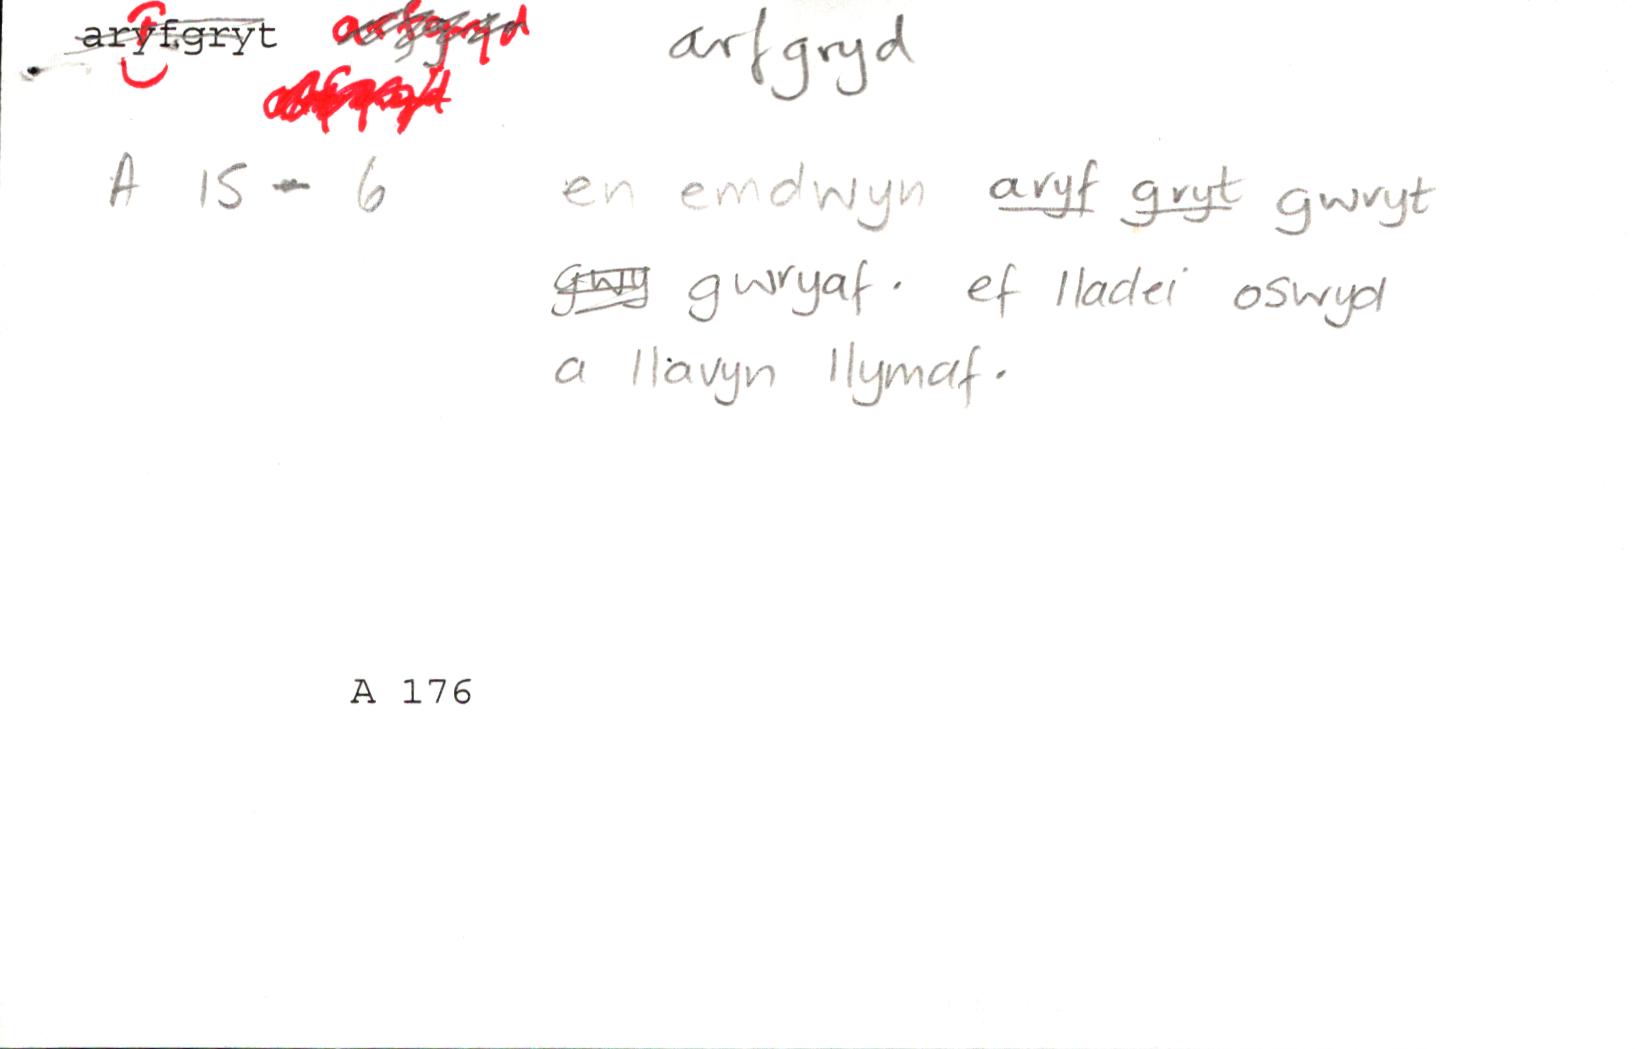 aryfgryt arfgryd arfgryd
A 15 - 6 en emdwyn aryf gryt gwryt
gwy gwryaf. ef lladei oswyd
a llavyn llymaf.
A 176